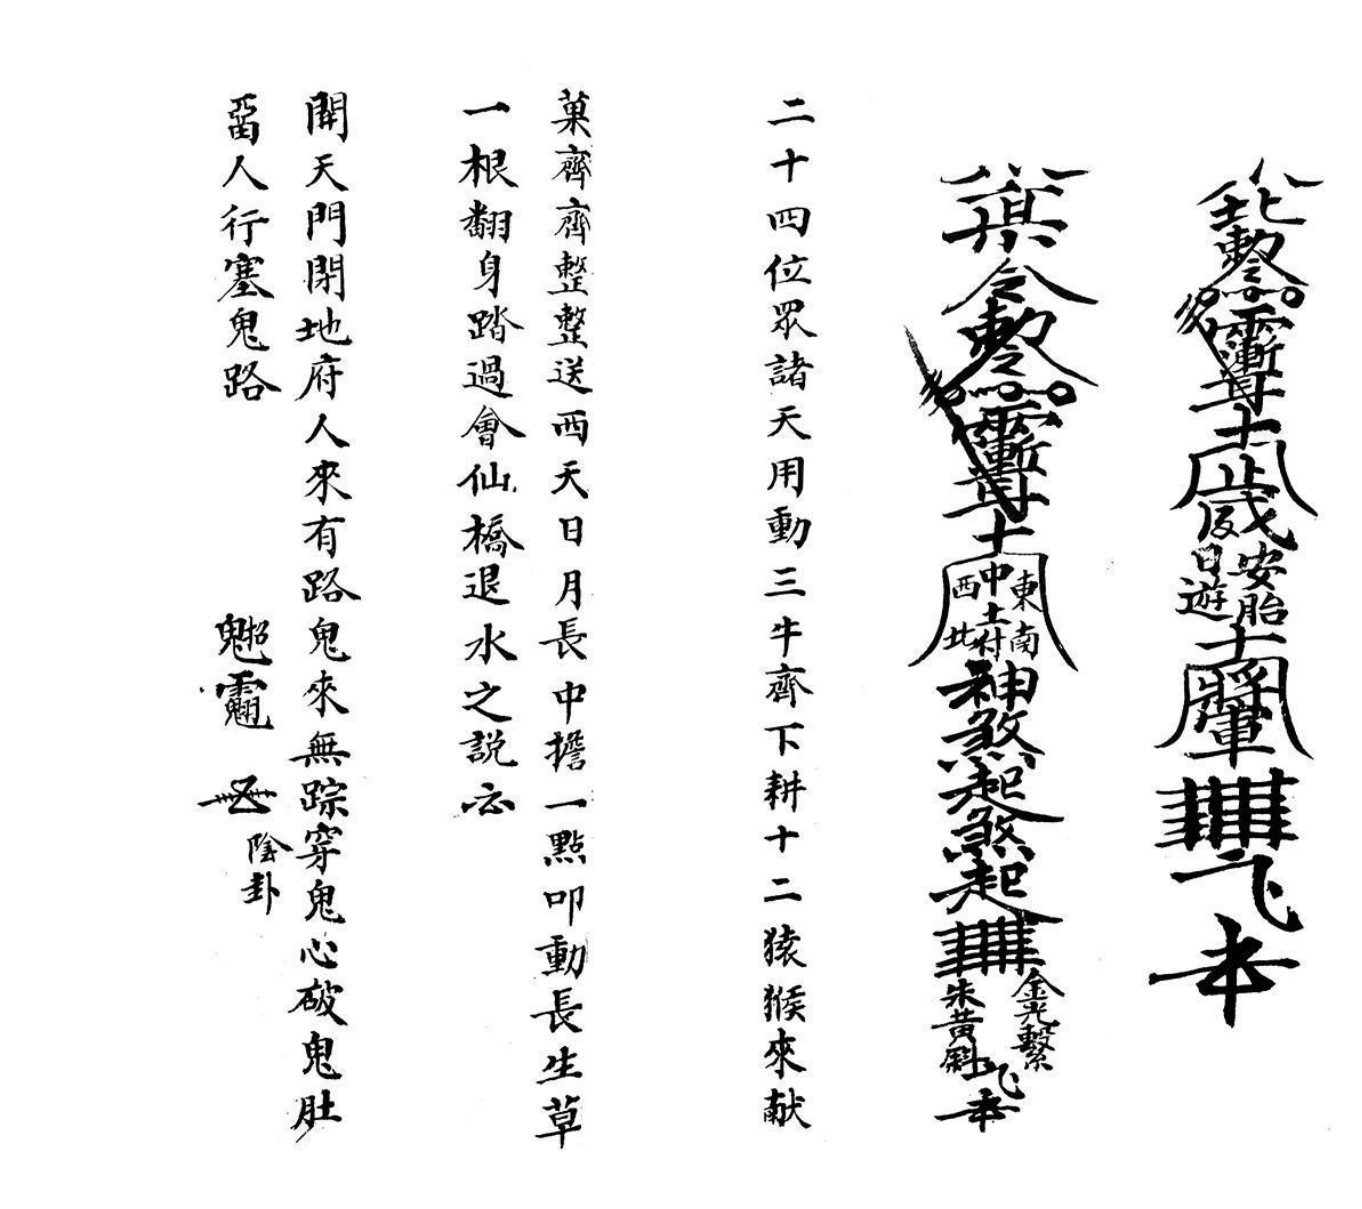 敕令
歲
安胎
日遊
將軍
敕令
東
南
中
土府
西
北
神煞起煞起
金光繫
朱黃
二十四位眾諸天用動三牛齊下耕十二猿猴來献
菓齊齊整整送西天日月長中擔一點叩動長生草
一根翻身踏過會仙橋退水之説
開天門閉地府人來有路鬼來無踪穿鬼心破鬼肚
畱人行塞鬼路
陰卦